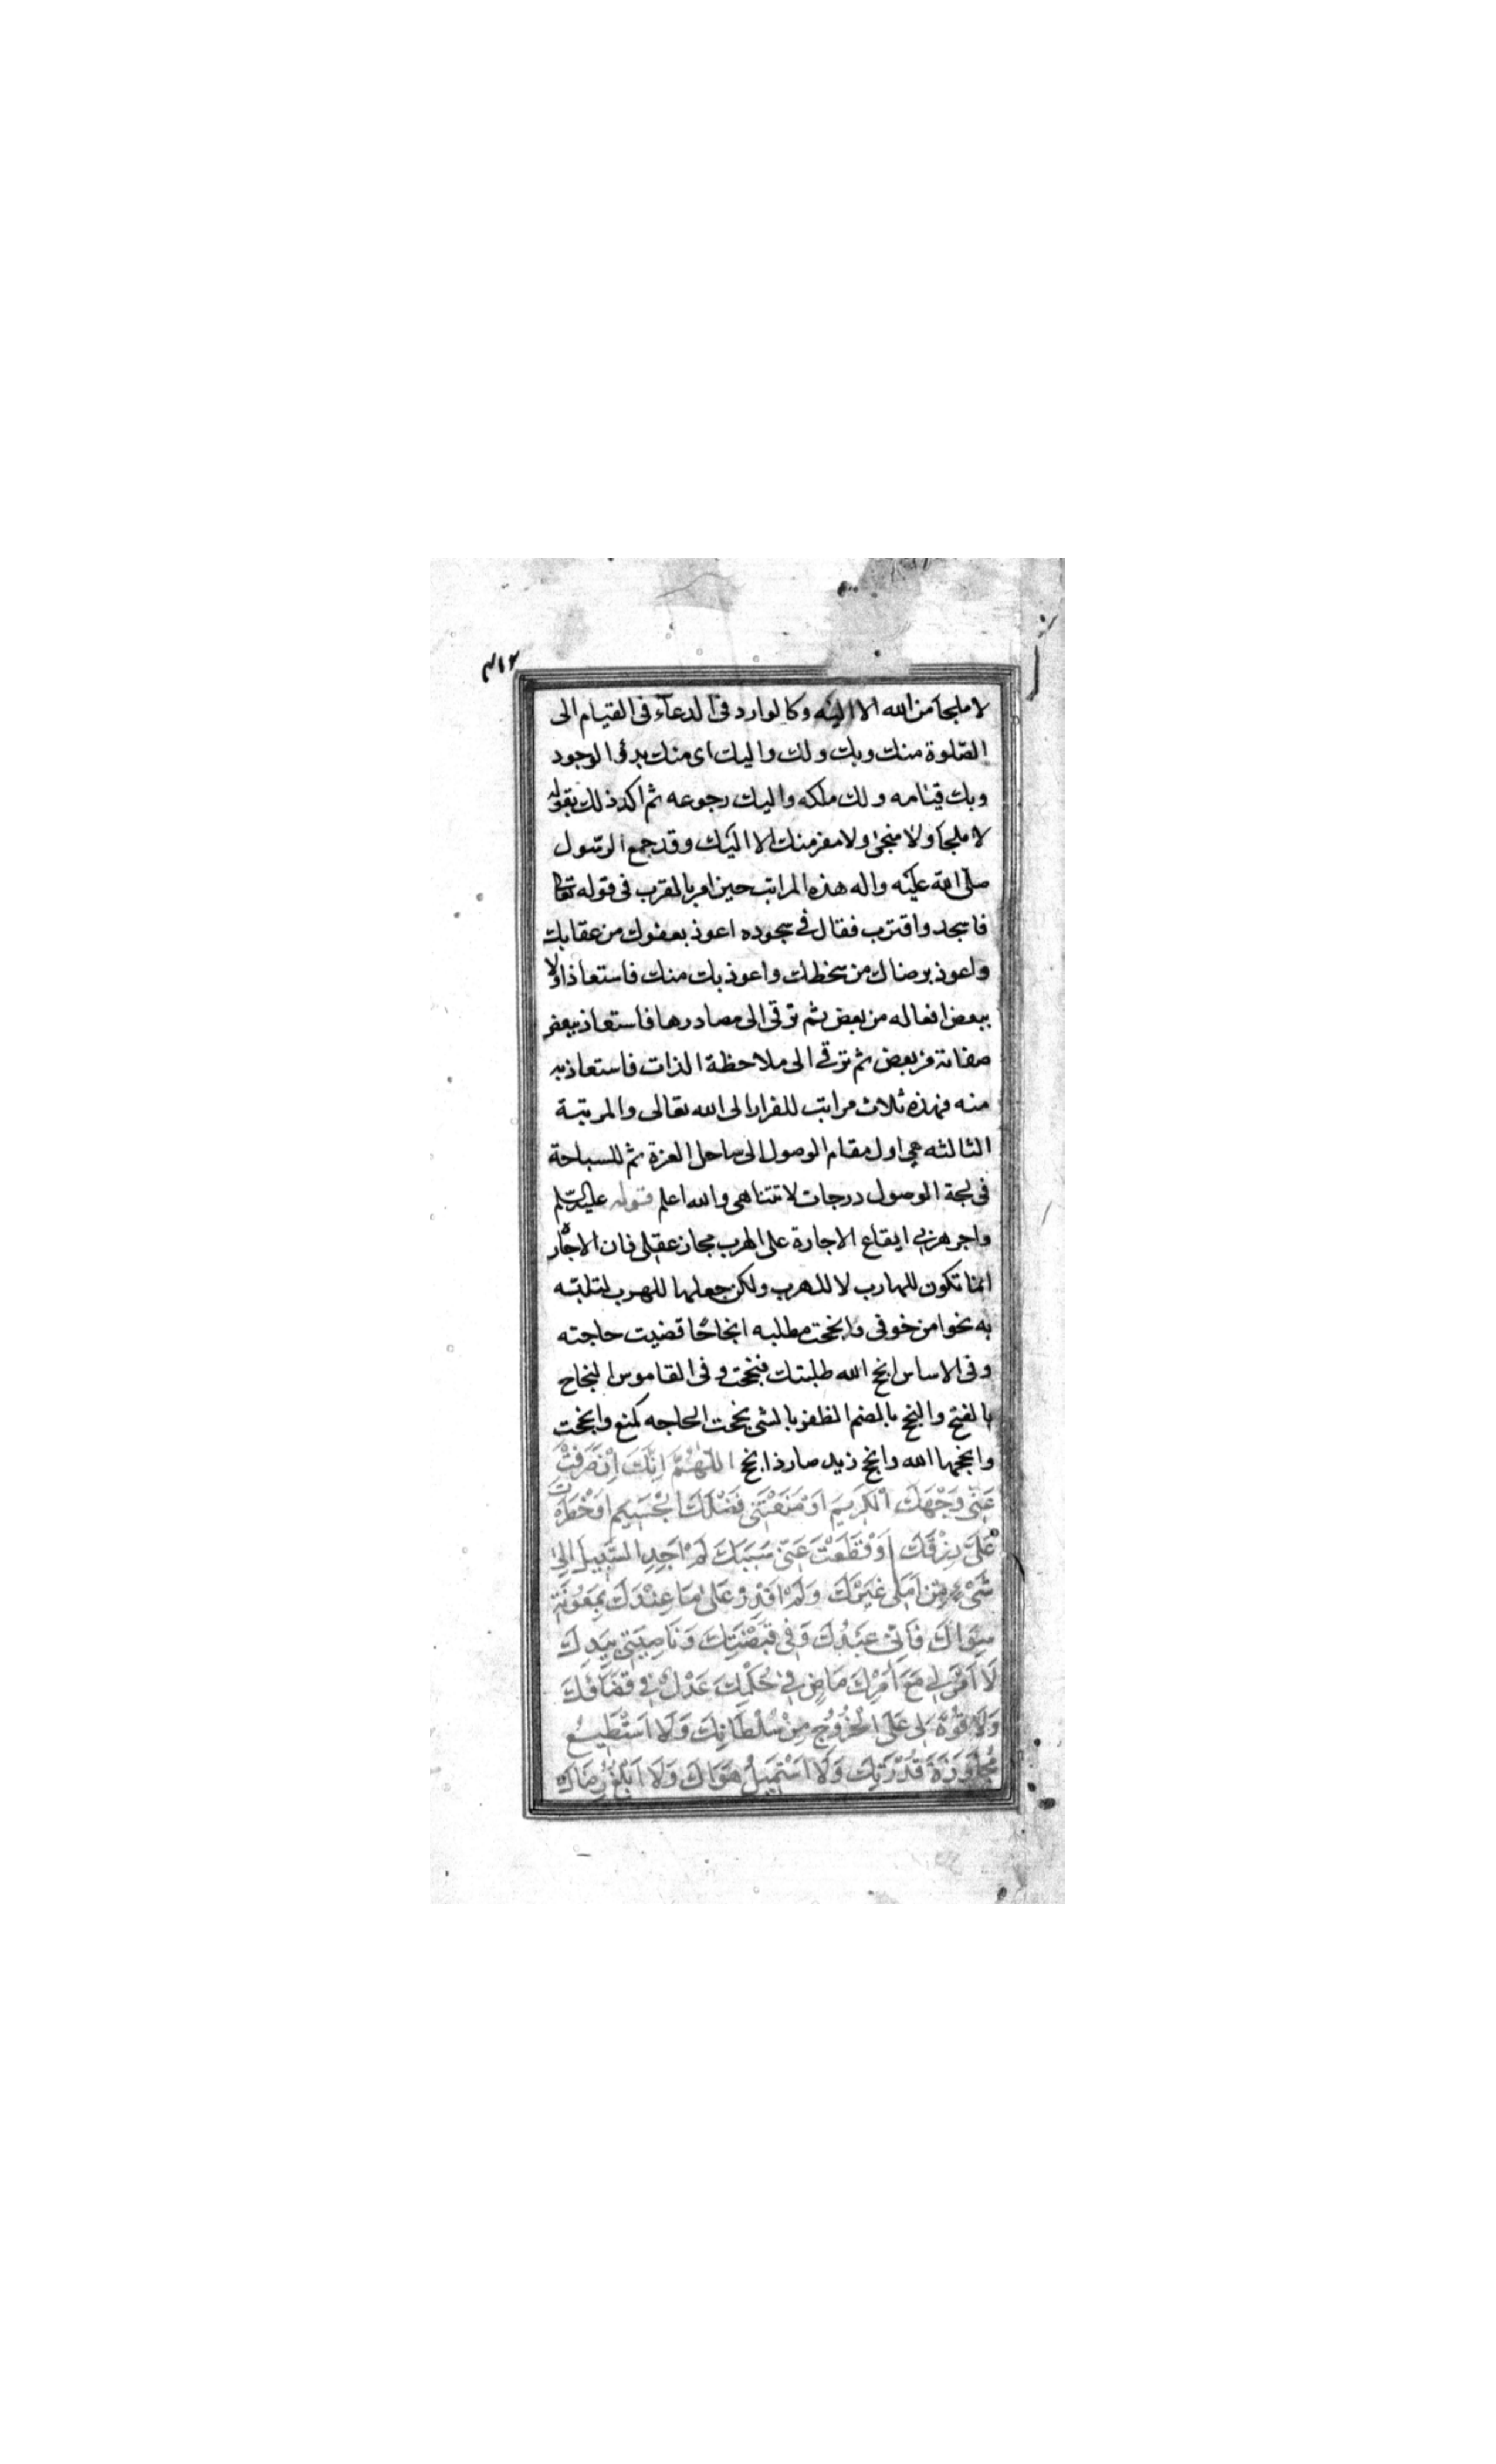 ٣١٢
لا ملجأ من الله الا اليه وكالوارد فى الدعاء فى القيام الى
الصّلوة منك وبك ولك واليك اى منك بدؤ الوجود
وبك قيامه ولك ملكه واليك رجوعه ثم اكد ذلك بقوله
لا ملجأ ولا منجى ولا مفر منك الا اليك وقد جمع الرّسول
صلى الله عليه واله هذه المراتب حين امر بالقرب فى قوله تعالى
فاسجد واقترب فقال فى سجوده اعوذ بعفوك من عقابك
واعوذ برضاك من سخطك واعوذ بك منك فاستعاذ اولا
ببعض افعاله من بعض ثم ترقى الى مصادرها فاستعاذ ببعض
صفاته من بعض ثم ترقى الى ملاحظة الذات فاستعاذ به
منه فهذه ثلاث مراتب للفرار الى الله تعالى والمرتبة
الثالثه هى اول مقام الوصول الى ساحل العزة ثم للسباحة
فى لجة الوصول درجات لا تتناهى والله اعلم قوله عليه السّلم
واجر هربى ايقاع الاجارة على الهرب مجاز عقلى فان الاجارة
انما تكون للهارب لا للهرب ولكن جعلها للهرب لتلبّسه
به نحو امن خوفى وانجحت مطلبه انجاحًا قضيت حاجته
وفى الاساس انجح الله طلبتك فنجحت وفى القاموس النجاح
بالفتح والنجح بالضم الظفر بالشى نجحت الحاجه كمنع وانجحت
وانجحها الله وانجح زيد صار ذا نجح اللّٰهُمَّ اِنَّكَ اِنْ صَرَفْتَ
عَنِّى وَجْهَكَ الْكَرِيمَ اَوْ مَنَعْتَنِى فَضْلَكَ الْجَسِيمَ اَوْ حَظَرْتَ
عَلَىَّ رِزْقَكَ اَوْ قَطَعْتَ عَنِّى سَبَبَكَ لَمْ اَجِدِ السَّبِيلَ اِلىٰ
شَىْءٍ مِنْ اَمَلِى غَيْرَكَ وَلَمْ اَقْدِرْ عَلىٰ مَا عِنْدَكَ بِمَعُونَةِ
سِوَاكَ فَاِنِّى عَبْدُكَ وَفِى قَبْضَتِكَ وَنَاصِيَتِى بِيَدِكَ
لَا اَمْرَ لِى مَعَ اَمْرِكَ مَاضٍ فِىَّ حُكْمُكَ عَدْلٌ فِىَّ قَضَاؤُكَ
وَلَا قُوَّةَ لِى عَلَى الْخُرُوجِ مِنْ سُلْطَانِكَ وَلَا اَسْتَطِيعُ
مُجَاوَزَةَ قُدْرَتِكَ وَلَا اَسْتَمِيلُ هَوَاكَ وَلَا اَبْلُغُ رِضَاكَ